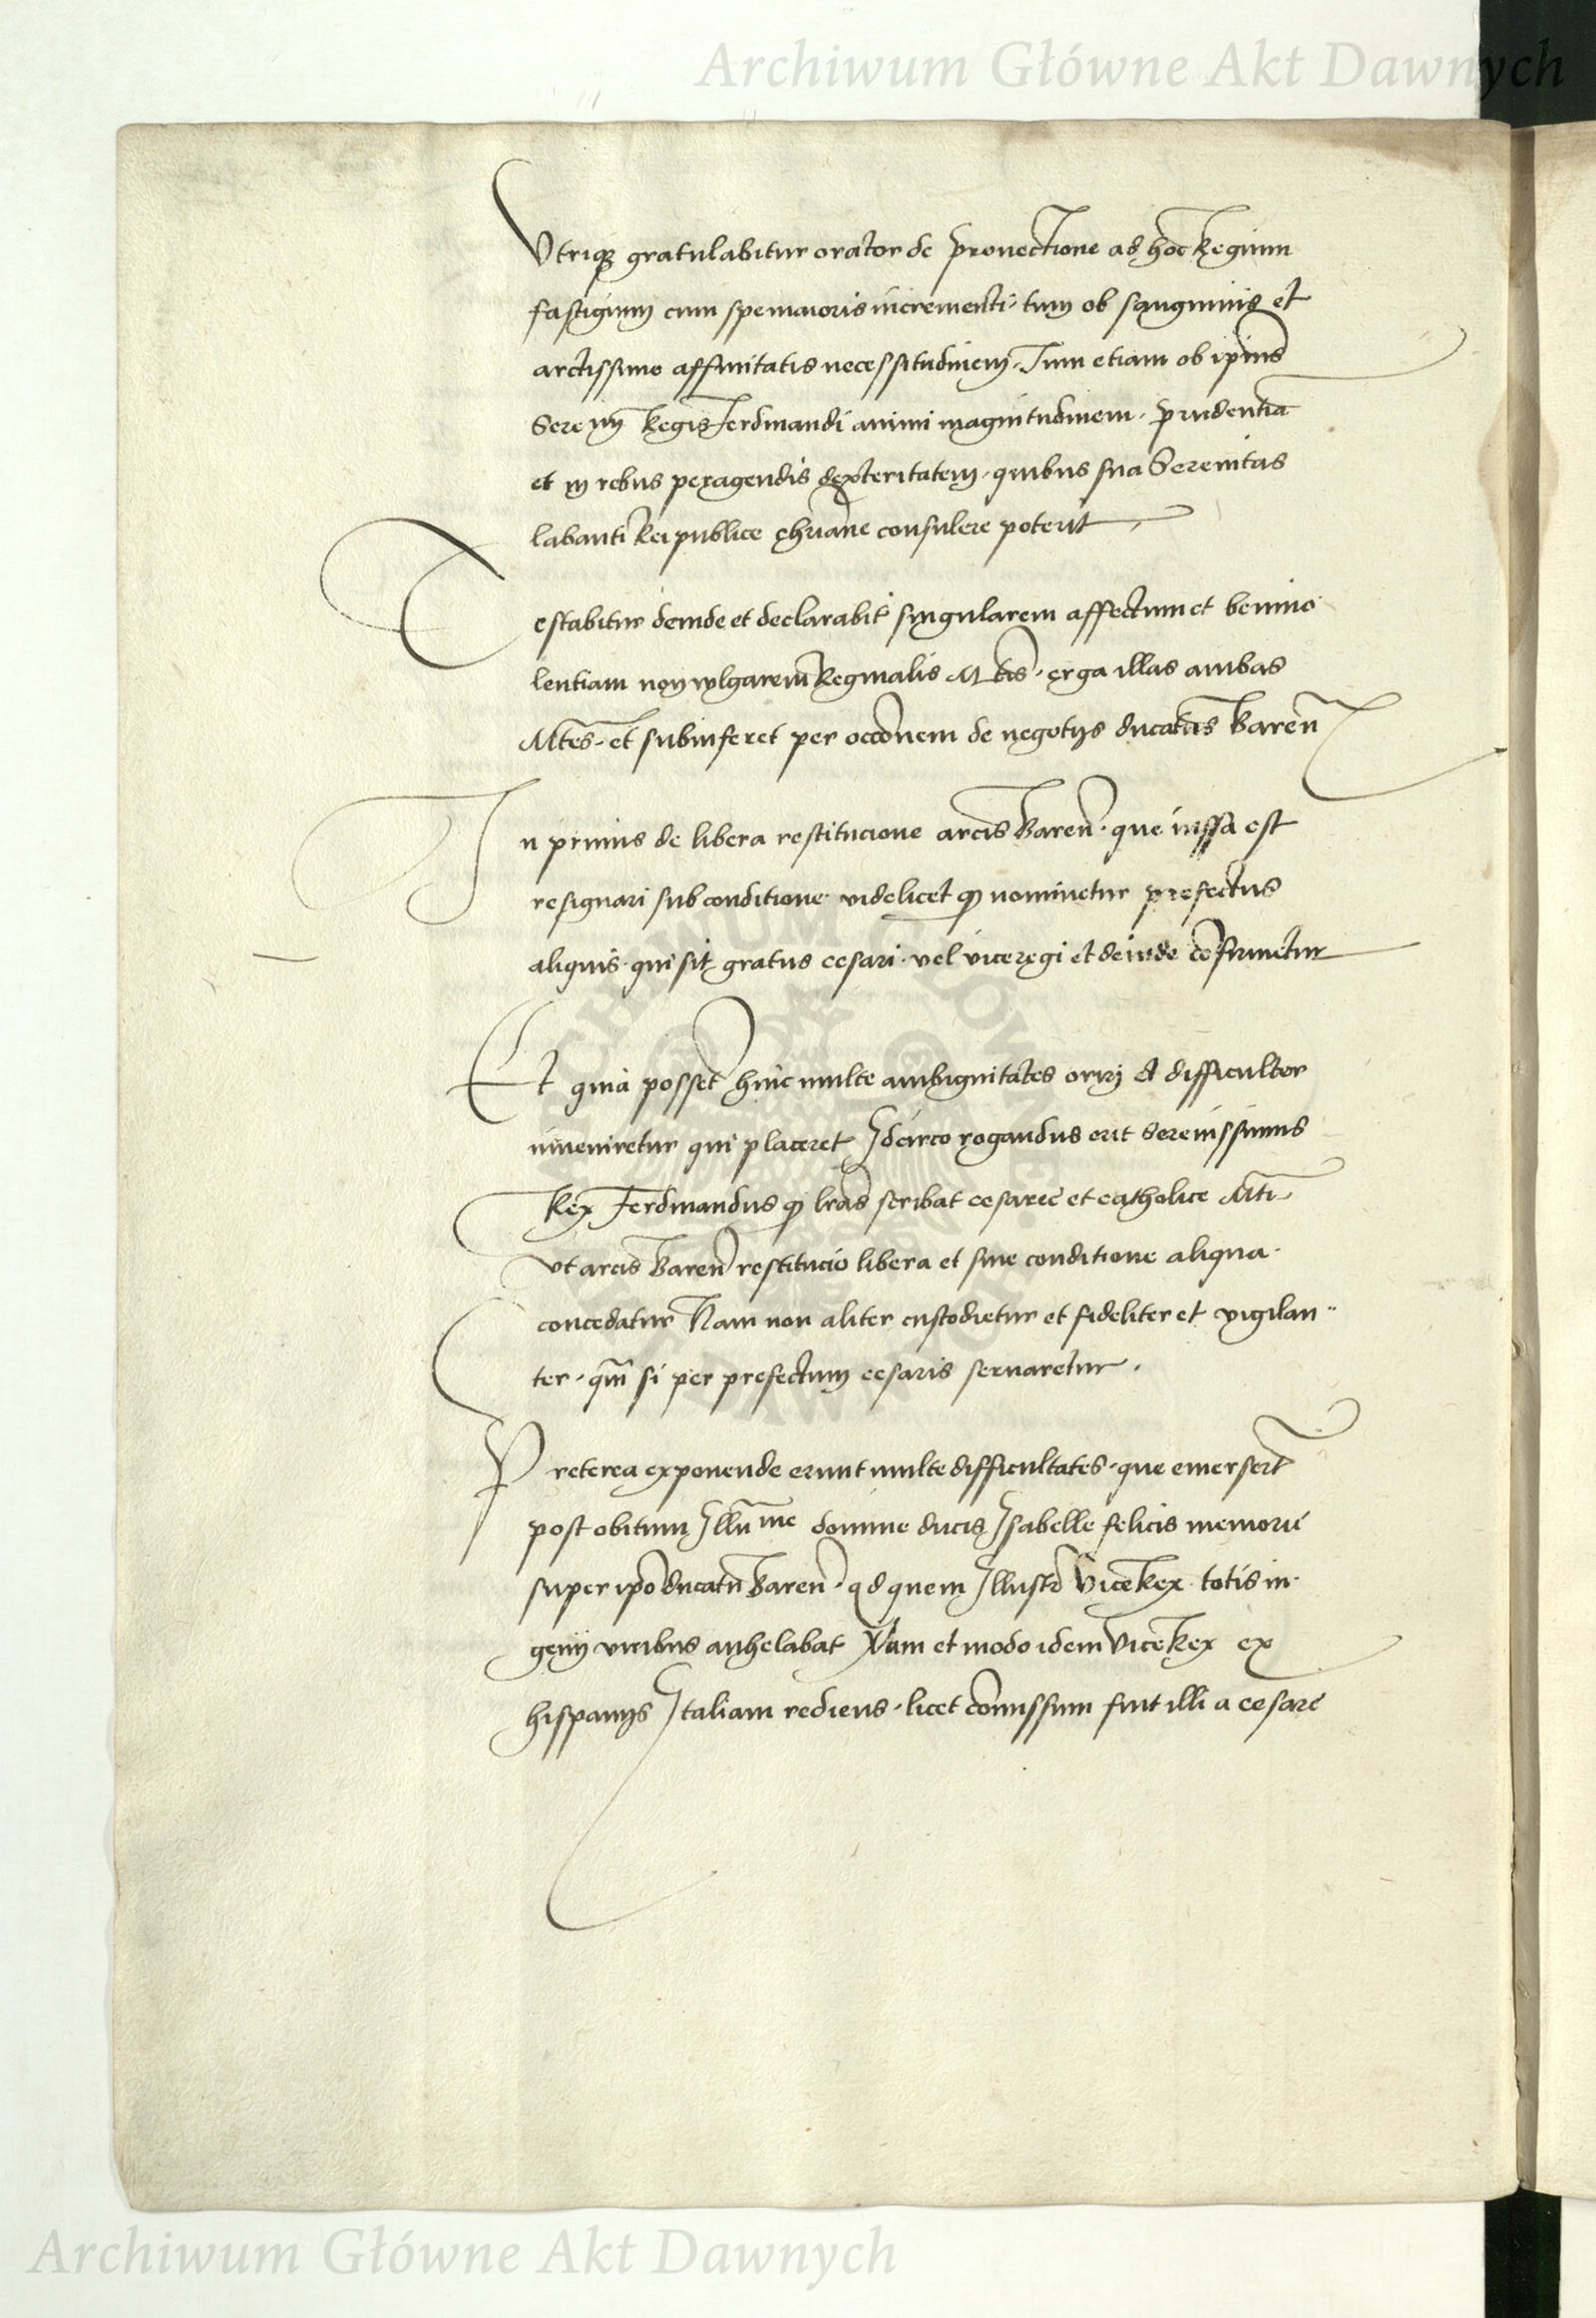 Archiwum Główne Akt Dawnych
Vtriq3 gratulabitur orator de provectione ad hoc Regium
fastigium cum spe maioris incrementi, tum ob sanguinis et
arctissime affinitatis necessitudinem. Tum etiam ob ipius
Seremi Regis Ferdinandi animi magnitudinem. prudentia
et in rebus peragendis dexteritatem. quibus sua Serenitas
labanti Rei publice chriane consulere poterit
Testabitur deinde et declarabit singularem affectum et beniuo
lentiam non vulgarem Reginalis Mtis. erga illas ambas
Mtes. et subinferet per occonem de negotijs ducatus Baren
In primis de libera restitucione arcis Baren. que iussa est
resignari sub conditione videlicet q nominetur prefectus
aliquis. qui sit gratus cesari. vel viceregi et deinde cofirmetur
Et quia posset hinc multe ambiguitates oriri et difficulter
inveniretur qui placeret Idcirco rogandus erit Serenissimus
Rex Ferdinandus q lras scribat cesaree et catholice Mti
vt arcis Baren restitucio libera et sine conditione aliqua.
concedatur Nam non aliter custodietur et fideliter et vigilan
ter. qm si per prefectum cesaris servaretur.
Preterea exponende erunt multe difficultates. que emersert
post obitum Illume domine ducis Isabelle felicis memorie
super ipo ducatu Baren. ad quem Illustr ViceRex totis in
genij viribus anhelabat Nam et modo idem ViceRex ex
hispanijs Italiam rediens. licet comissum fuit illi a cesare
Archiwum Główne Akt Dawnych